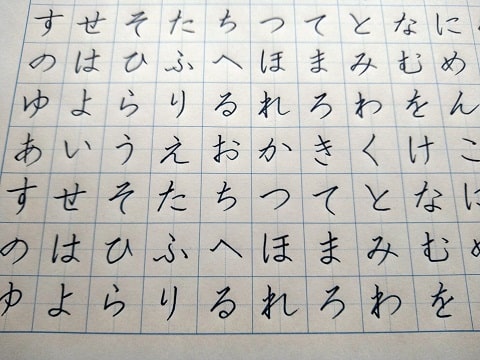 すせそたちつてとなに
のはひふへほまみむめ
ゆよらりるれろわをん
あいうえおかきくけこ
すせそたちつてとなに
のはひふへほまみむめ
ゆよらりるれろわを